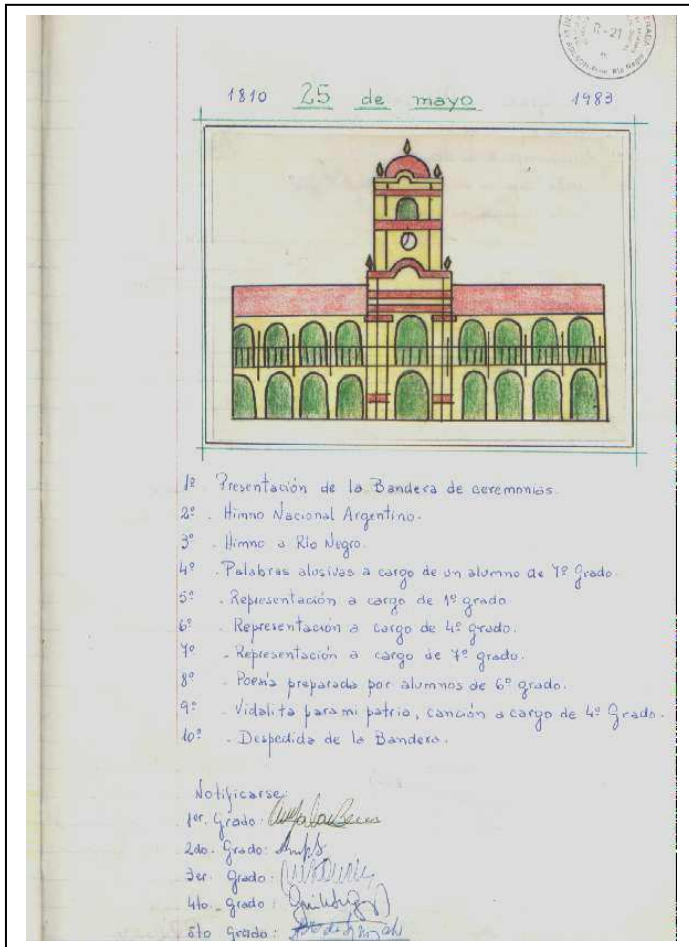 1810 25 de mayo 1983
1º Presentación de la Bandera de ceremonias.
2º . Himno Nacional Argentino.
3º . Himno a Río Negro.
4º . Palabras alusivas a cargo de un alumno de 7º Grado.
5º . Representación a cargo de 1º grado
6º . Representación a cargo de 4º grado.
7º . Representación a cargo de 7º grado.
8º . Poesía preparada por alumnos de 6º grado.
9º . Vidalita para mi patria, canción a cargo de 4º Grado.
10º . Despedida de la Bandera.
Notificarse:
1er. Grado:
2do. Grado:
3er. Grado:
4to. Grado:
5to Grado:
R-21
Río Negro